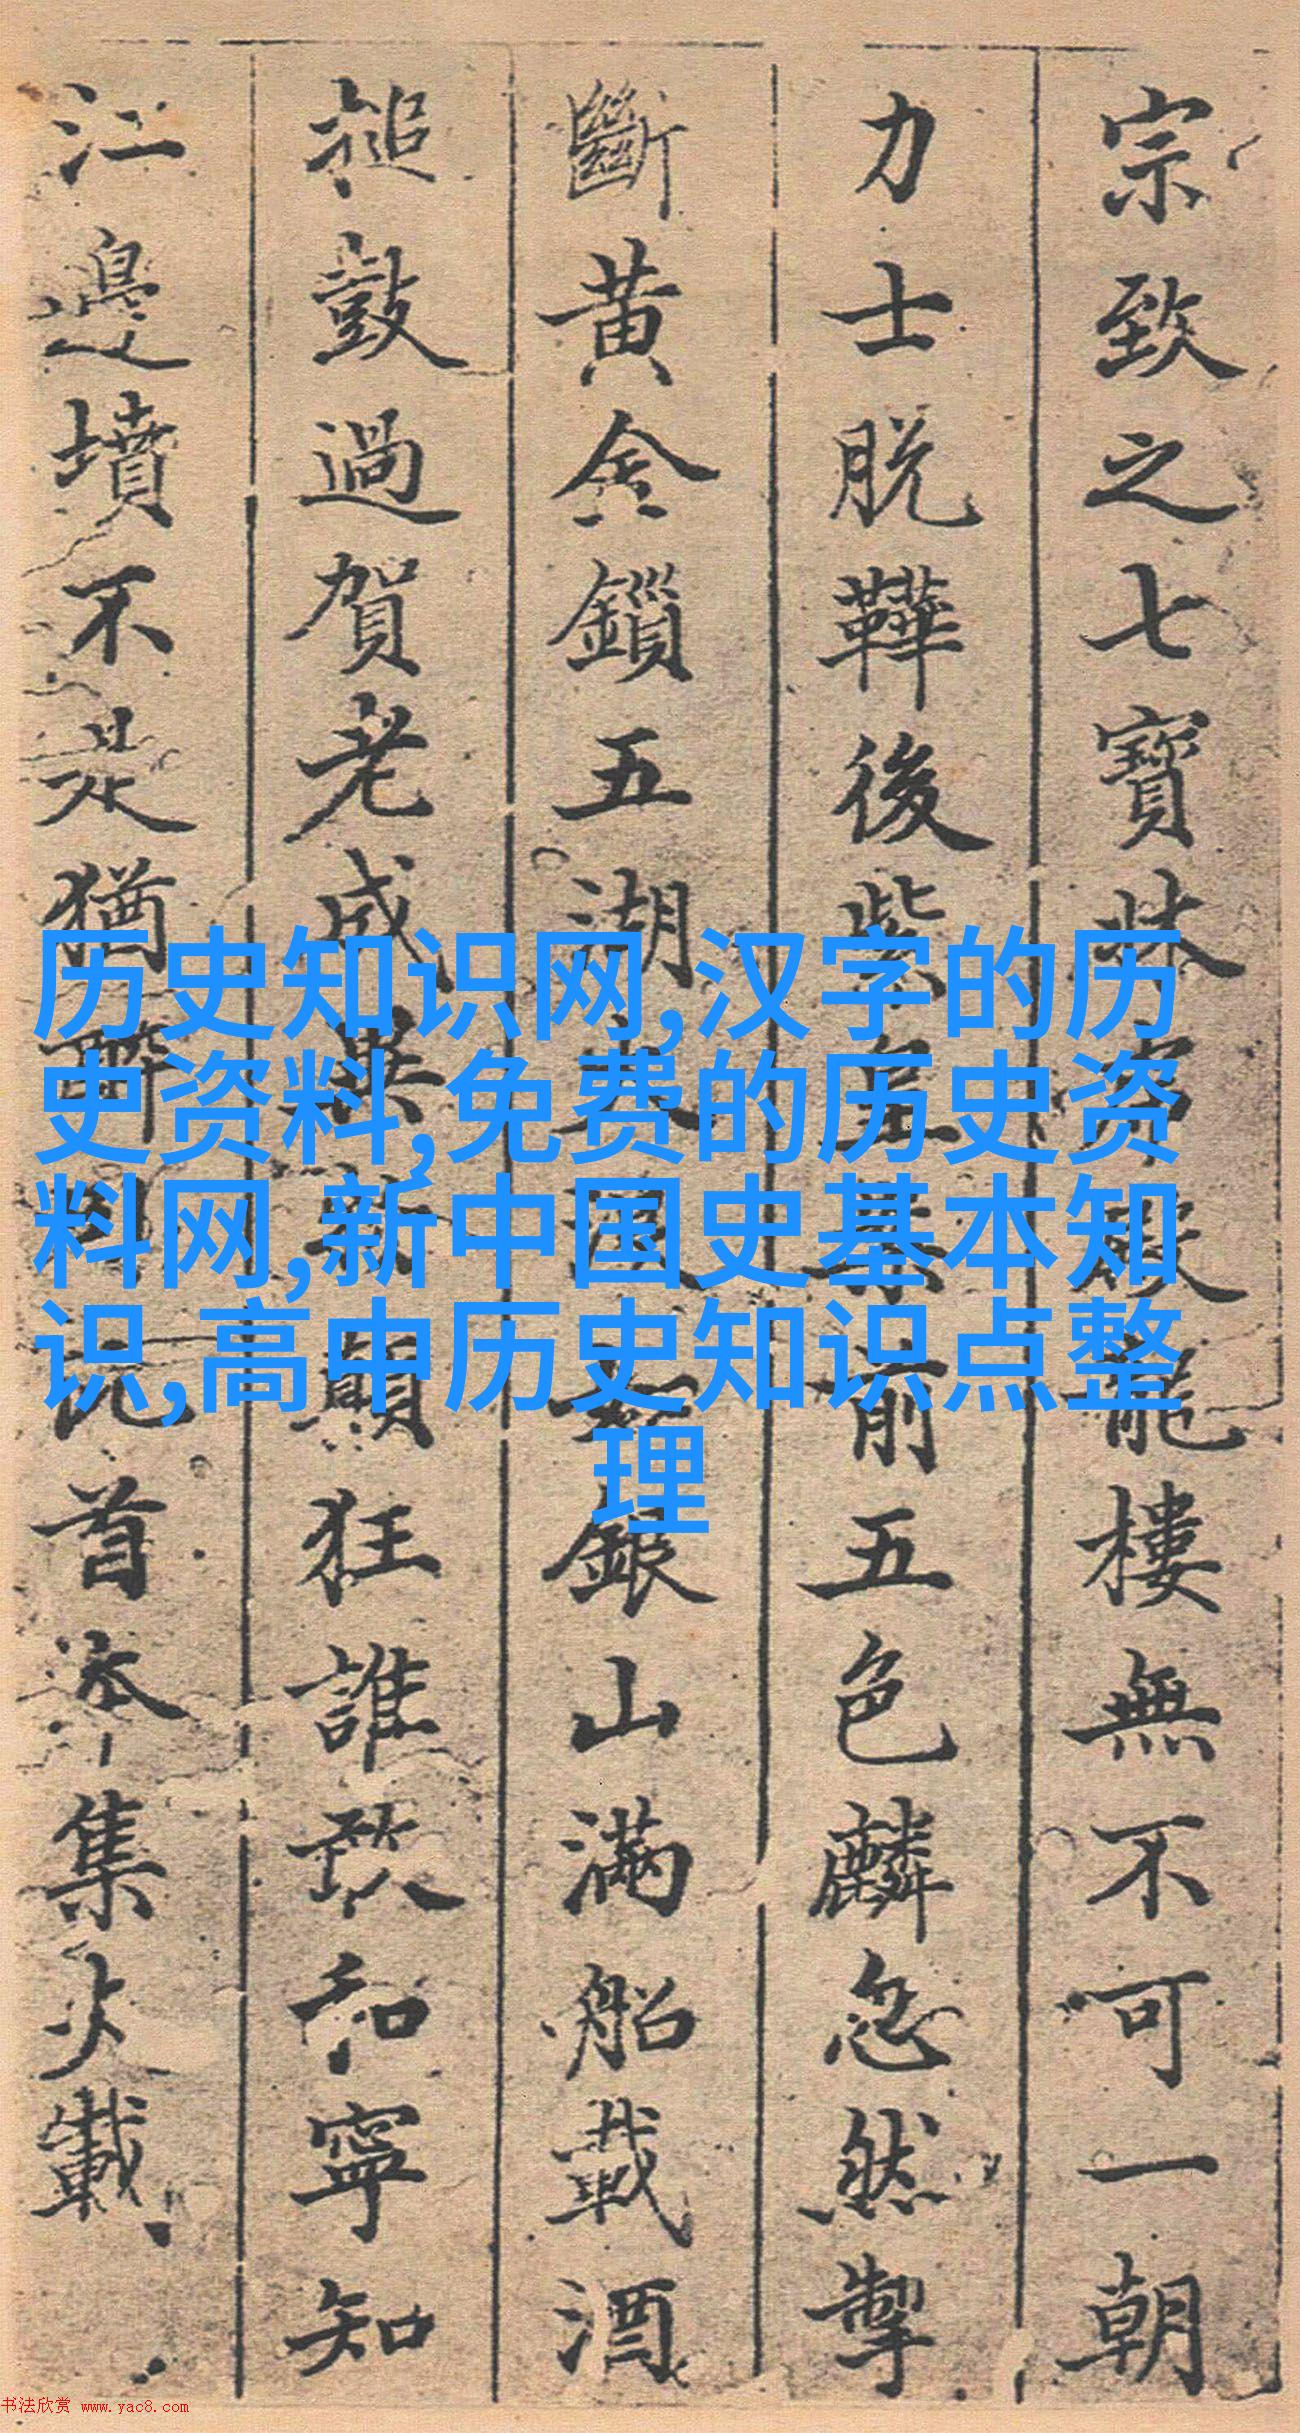 宗致之七寶牀宮殿龍樓無不可一朝
力士脫鞾後紫皇案前五色麟忽然掣
斷黃金鎖五湖大浪如銀山滿船載酒
搥鼓過賀老成異物顛狂誰敢和寧知
江邊墳不是猶醉臥此首本集載
历史知识网,汉字的历
史资料,免费的历史资
料网,新中国史基本知
识,高中历史知识点整
理
书法欣赏 www.yac8.com